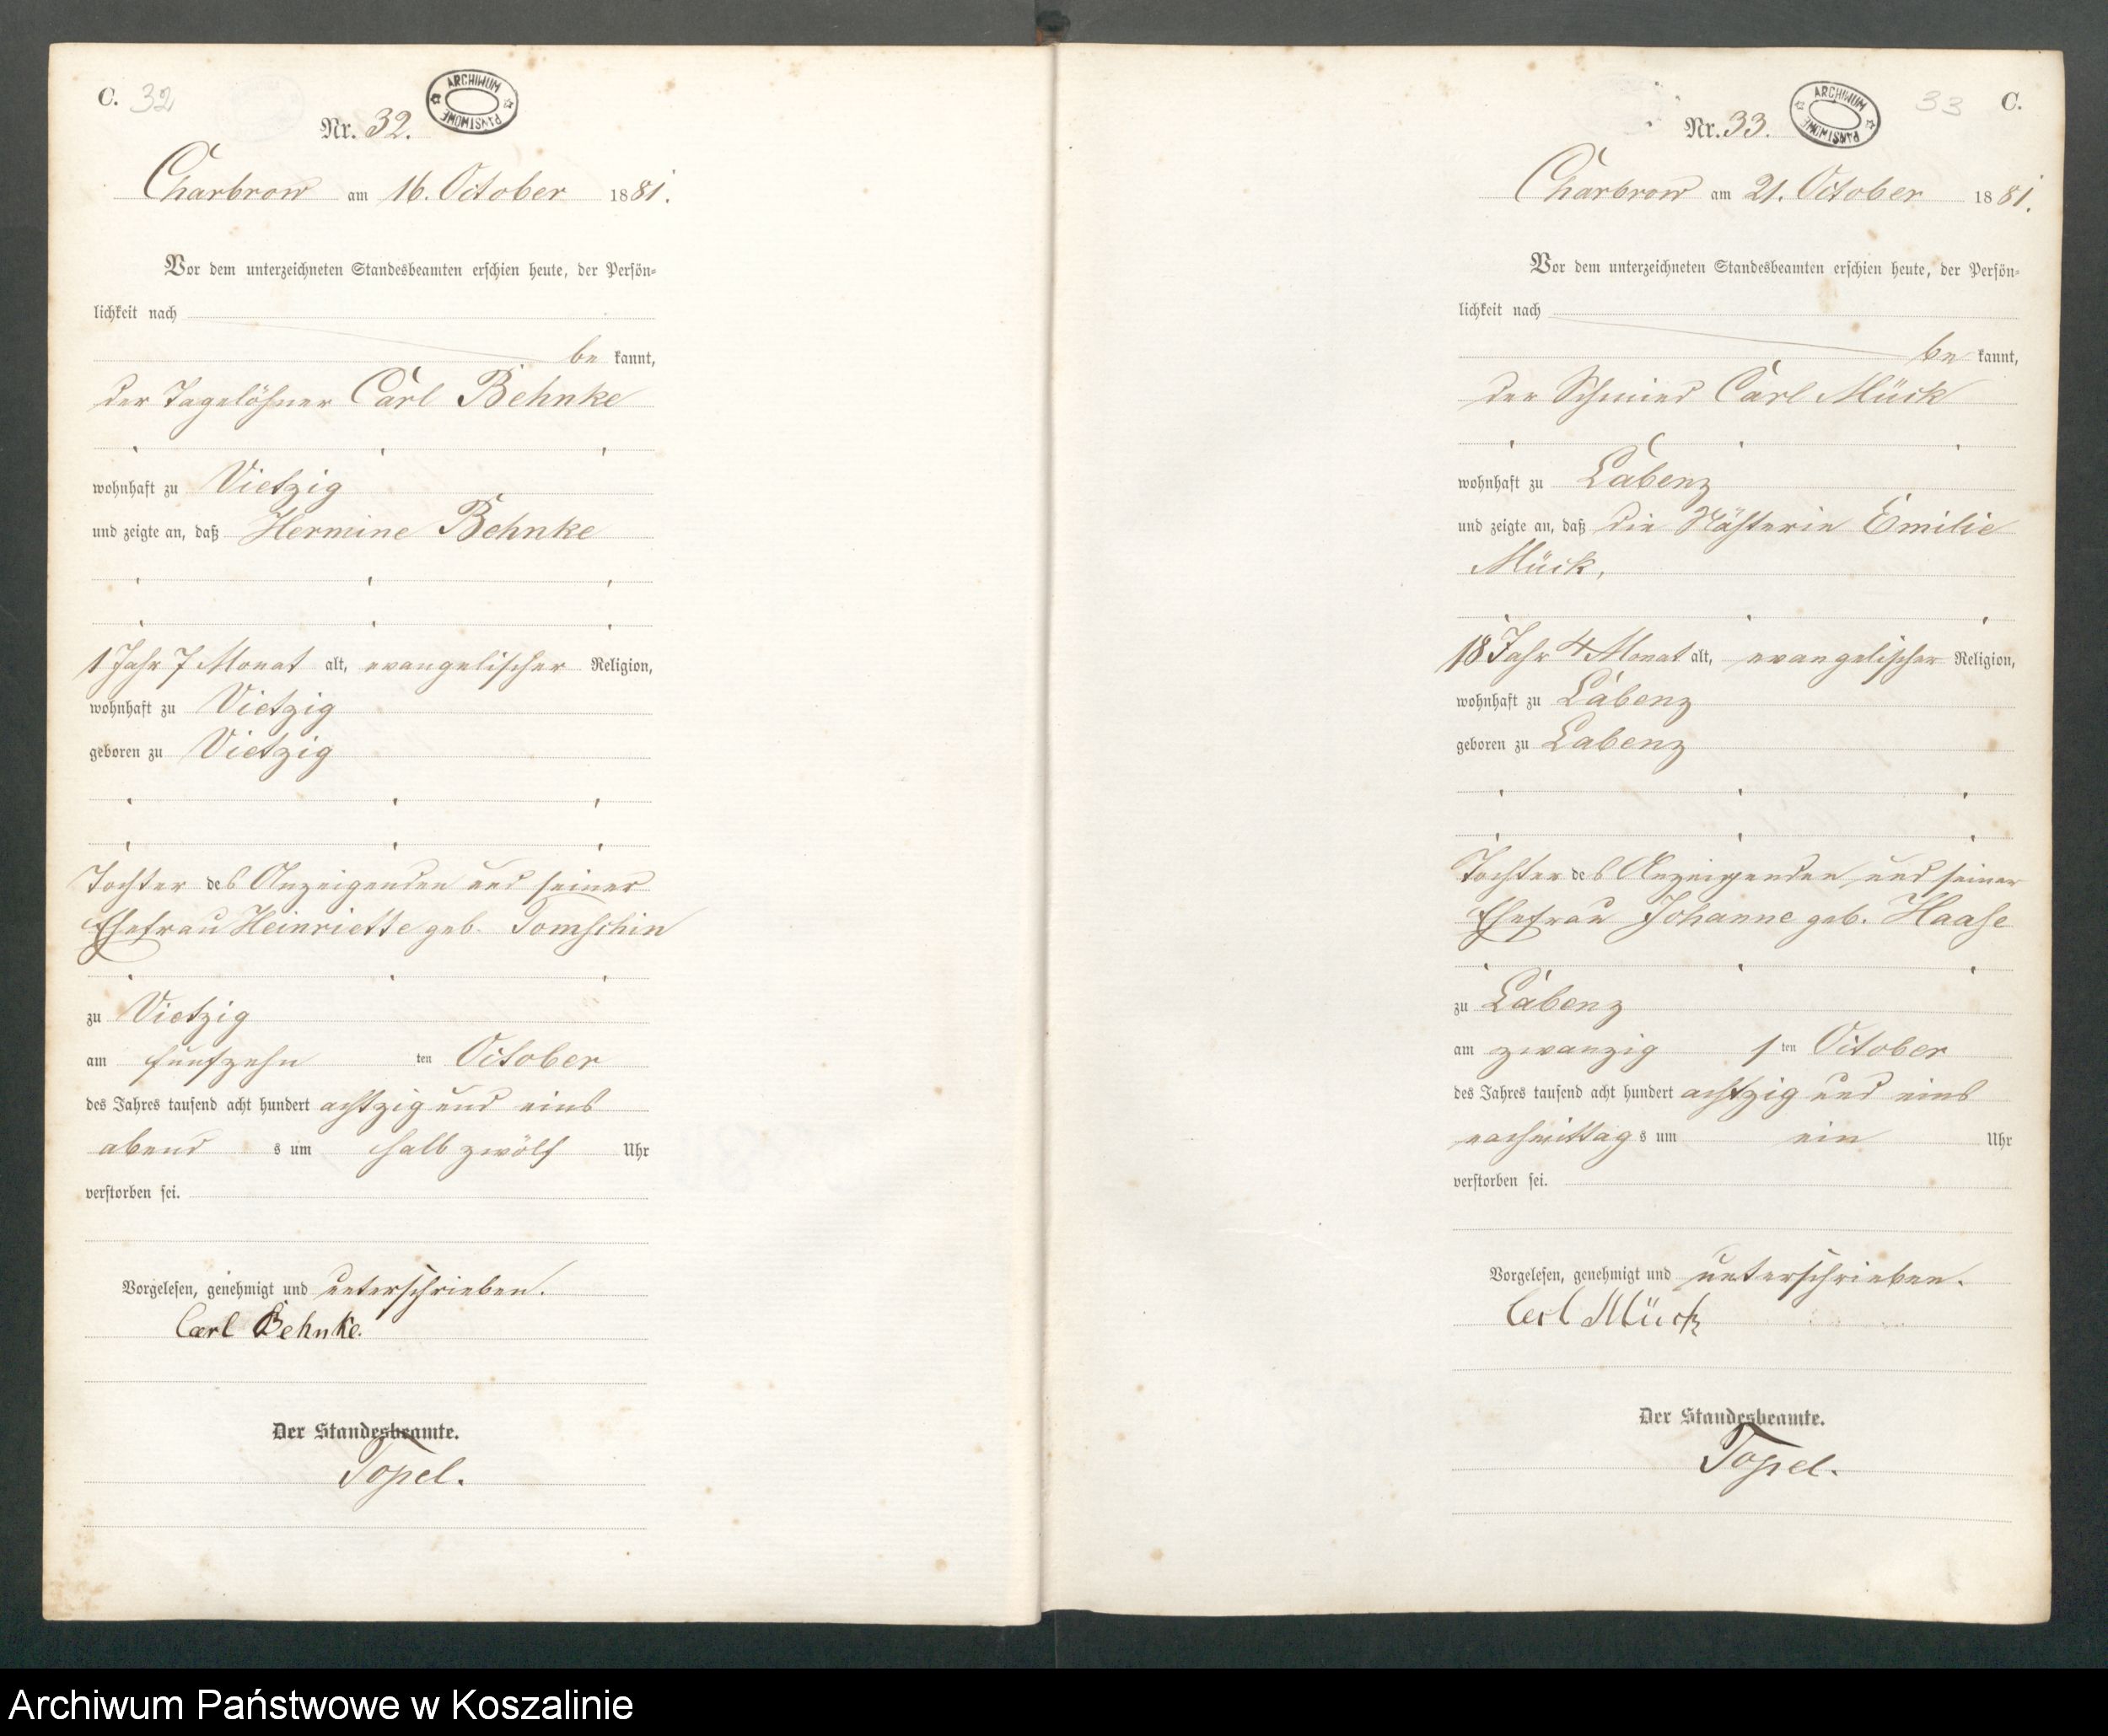 C. 32
ARCHIWUM PAŃSTWOWE
Nr. 32.
Charbrow am 16. October 1881.
Vor dem unterzeichneten Standesbeamten erschien heute, der Persön-
lichkeit nach
be kannt,
der Tagelöhner Carl Behnke
wohnhaft zu Vietzig
und zeigte an, daß Hermine Behnke
1 Jahr 7 Monat alt, evangelischer Religion,
wohnhaft zu Vietzig
geboren zu Vietzig
Tochter des Anzeigenden und seiner
Ehefrau Heinriette geb. Tomschin
zu Vietzig
am fünfzehn ten October
des Jahres tausend acht hundert achtzig und eins
abend s um halb zwölf Uhr
verstorben sei.
Vorgelesen, genehmigt und unterschrieben.
Carl Behnke.
Der Standesbeamte.
Topel.
33 C.
ARCHIWUM PAŃSTWOWE
Nr. 33.
Charbrow am 21. October 1881.
Vor dem unterzeichneten Standesbeamten erschien heute, der Persön-
lichkeit nach
be kannt,
der Schmied Carl Mück
wohnhaft zu Labenz
und zeigte an, daß die Nähterin Emilie
Mück,
18 Jahr 4 Monat alt, evangelischer Religion,
wohnhaft zu Labenz
geboren zu Labenz
Tochter des Anzeigenden und seiner
Ehefrau Johanne geb. Haase
zu Labenz
am zwanzig sten October
des Jahres tausend acht hundert achtzig und eins
nachmittag s um ein Uhr
verstorben sei.
Vorgelesen, genehmigt und unterschrieben.
Carl Mück
Der Standesbeamte.
Topel.
Archiwum Państwowe w Koszalinie